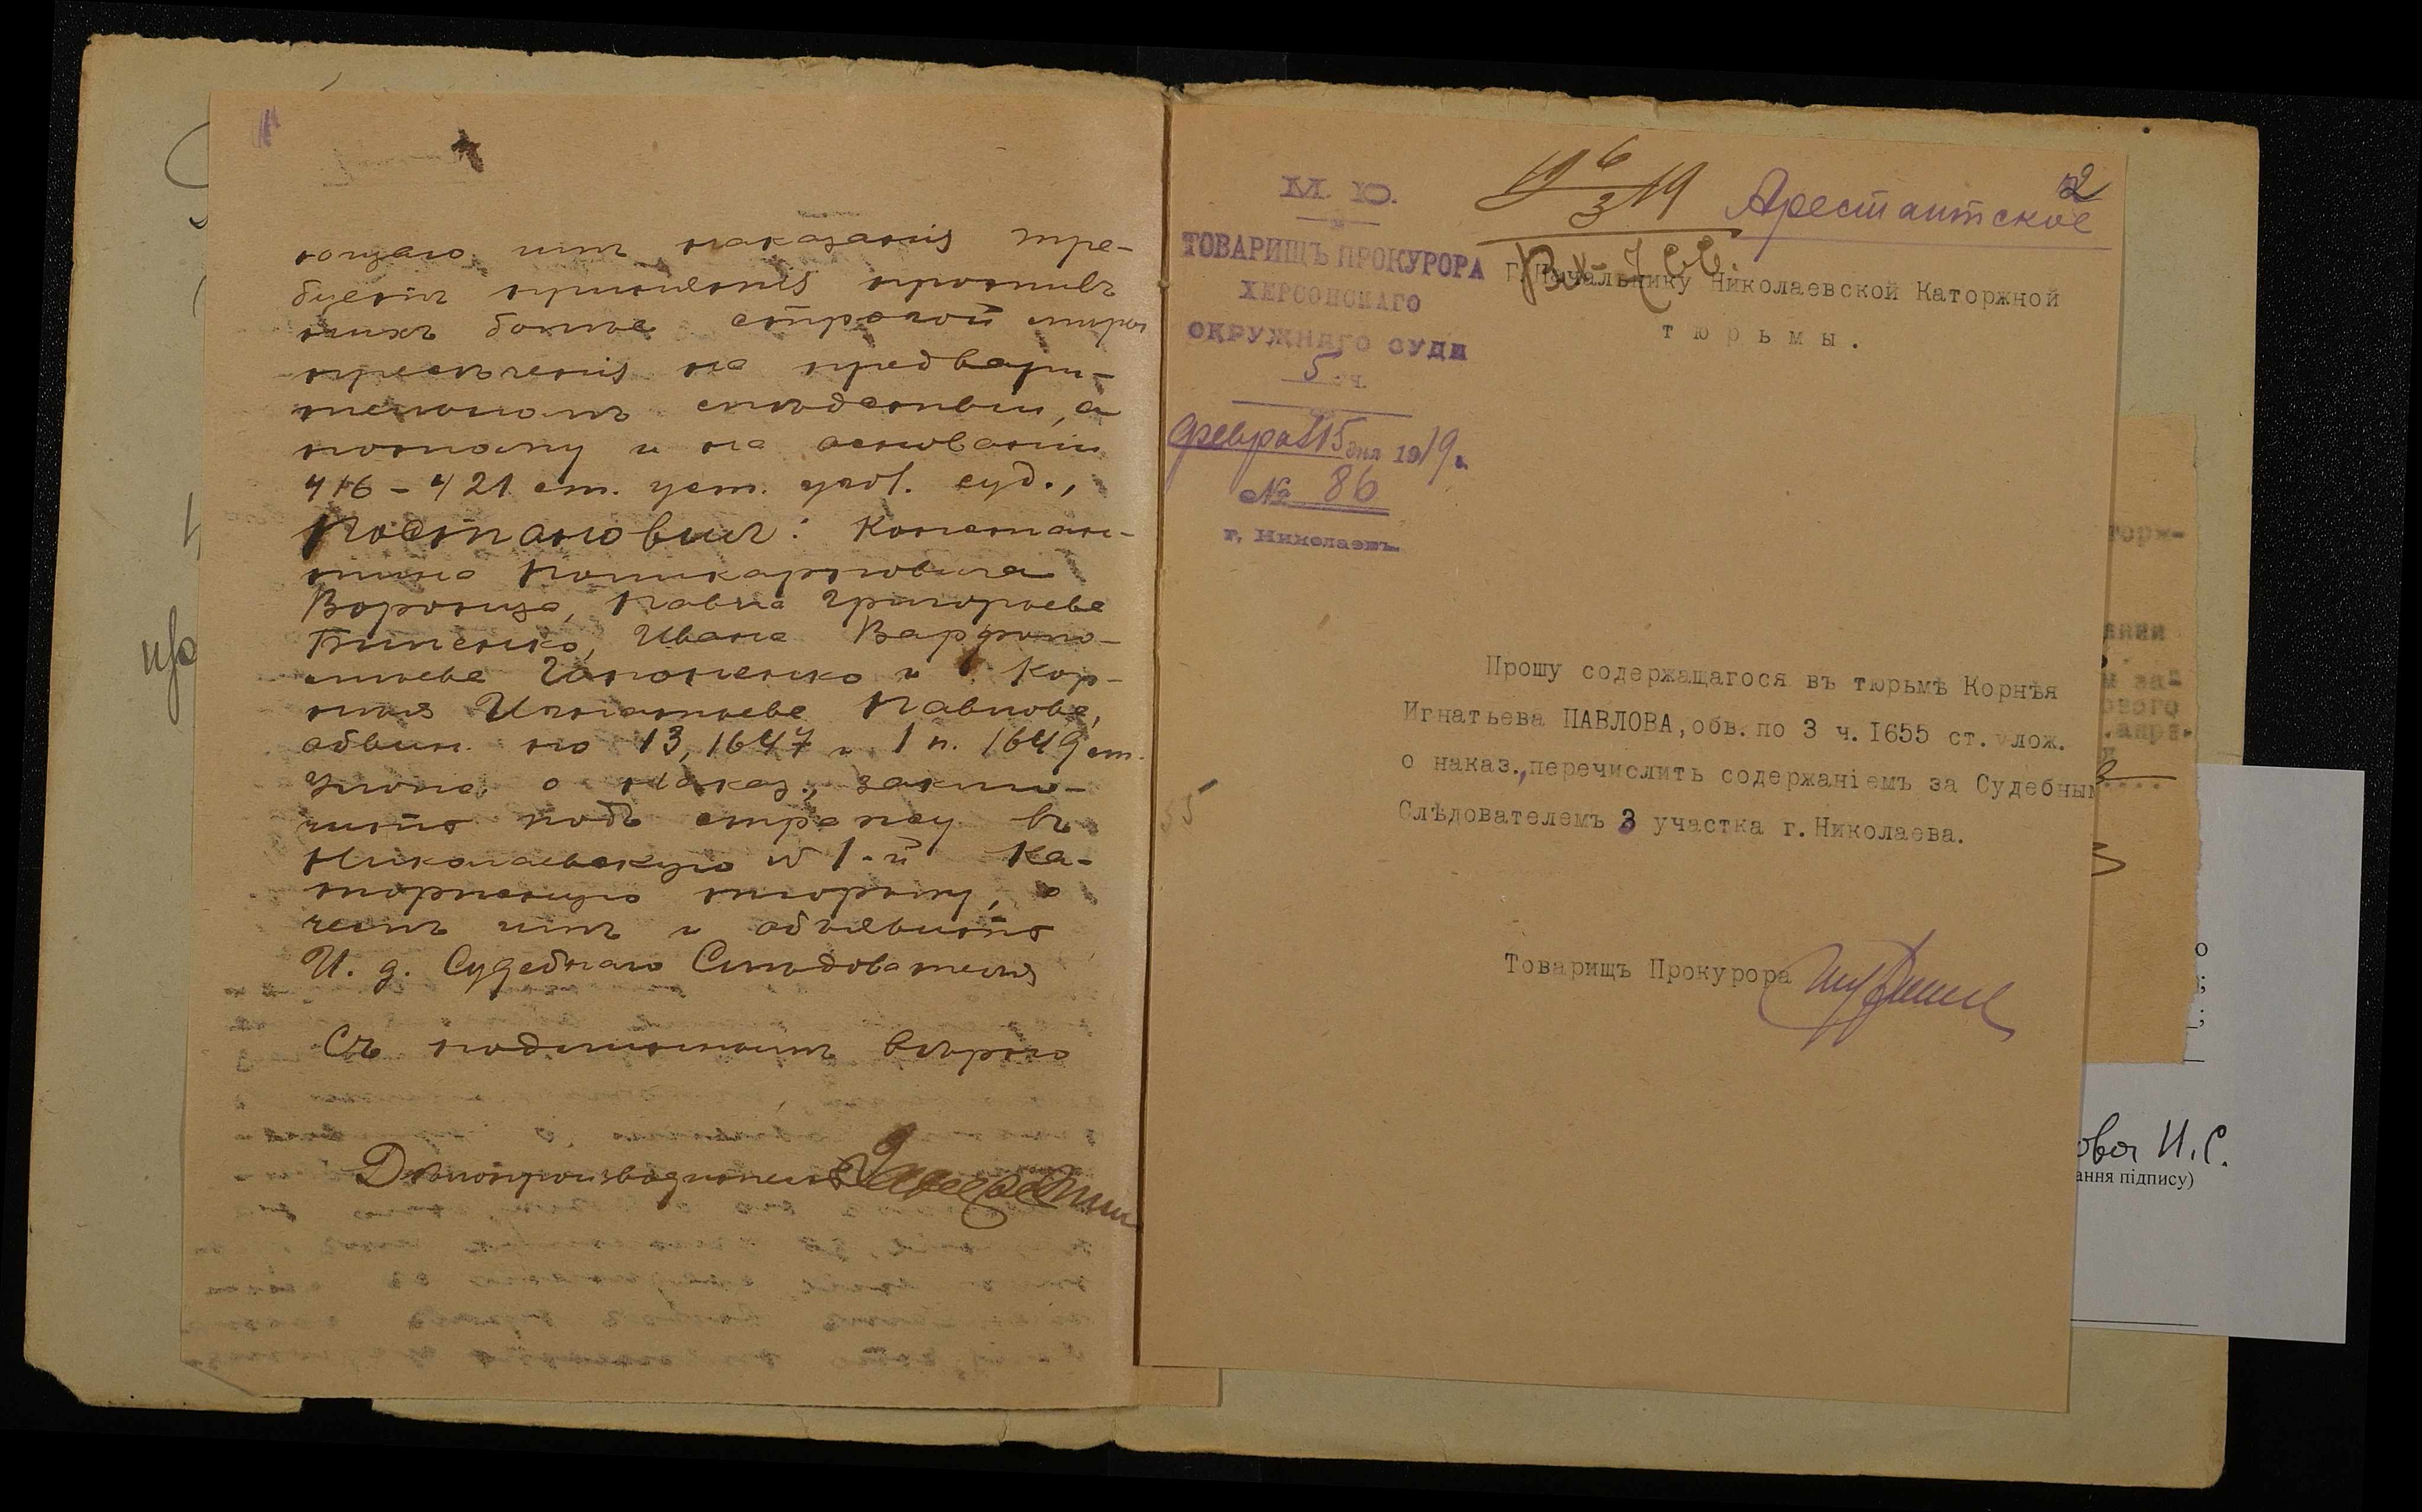 ющаго имъ наказанія тре-
буетъ принятія противъ
нихъ болѣе строгой мѣры
пресѣченія на предвари-
тельномъ слѣдствіи, а
потому и на основаніи
416-421 ст. уст. угол. суд.,
Постановилъ: Констан-
тина Поликарповича
Воронца, Павла Григорьева
Биленко, Ивана Варфоло-
меева Гапоненко и Кор-
нѣя Игнатьева Павлова,
обвин. по 13, 1647 и 1 п. 1649 ст.
Улож. о наказ., заклю-
чить подъ стражу въ
Николаевскую № 1-й Ка-
торжную тюрьму, о
чемъ имъ и объявить
И. д. Судебнаго Слѣдователя
Съ подлиннымъ вѣрно
Дѣлопроизводитель
2
Арестантское
6
19 3 19
Вх. 766.
М. Ю.
ТОВАРИЩЪ ПРОКУРОРА
ХЕРСОНСКАГО
ОКРУЖНАГО СУДА
5 уч.
Февра 15 дня 1919 г.
№ 86
г. Николаевъ.
Г. Начальнику Николаевской Каторжной
тюрьмы.
Прошу содержащагося въ тюрьмѣ Корнѣя
Игнатьева ПАВЛОВА, обв. по 3 ч. I655 ст. улож.
о наказ., перечислить содержаніемъ за Судебным
Слѣдователемъ 3 участка г. Николаева.
Товарищъ Прокурора
торж-
ании
м за-
ового
.апра-
ова И.С.
ання підпису)